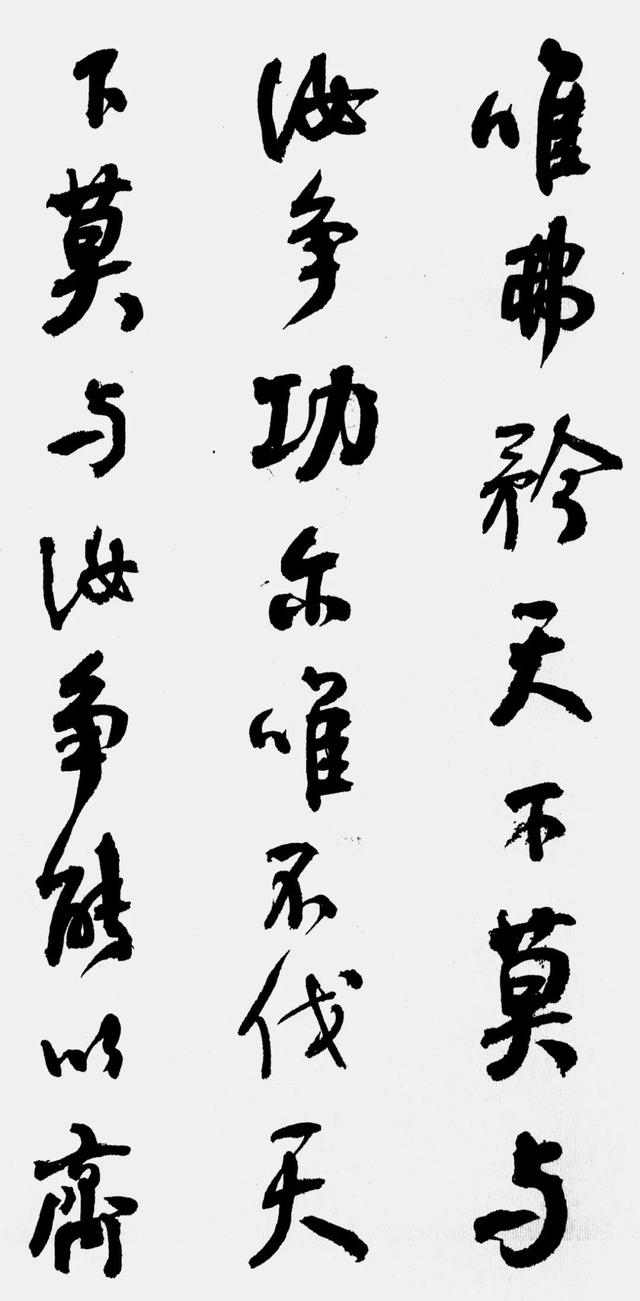 唯弗矜天下莫与
汝争功尔唯不伐天
下莫与汝争能以齊